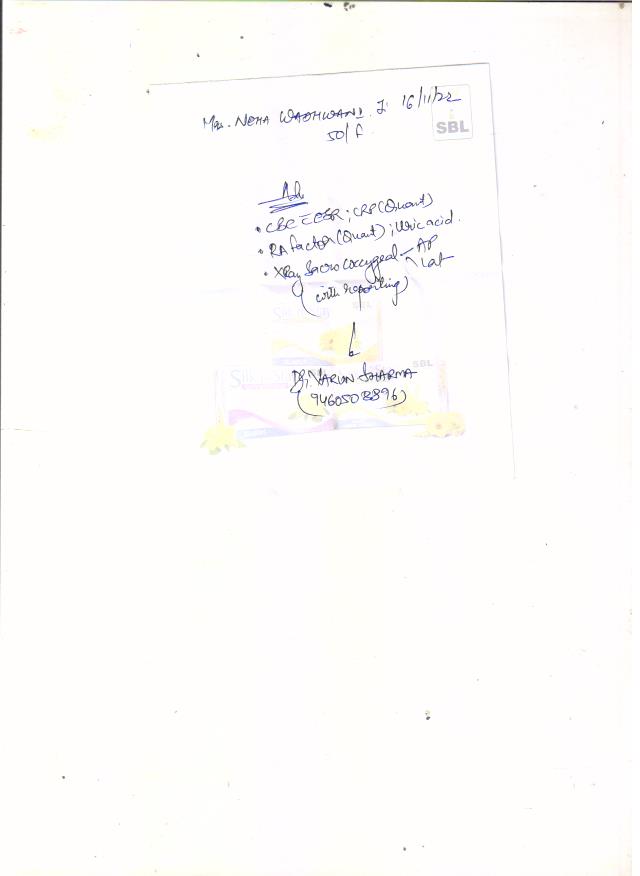 Mrs. NEHA WADHWANI 16/11/22
SBL
50/f
Adv
• CBC c̄ ESR ; CRP (Quant)
• RA factor (Quant) ; Uric acid.
• XRay Sacro Coccygeal - AP
Lat
(with reporting)
SBL
SBL
Dr. VARUN SHARMA
(9460508896)